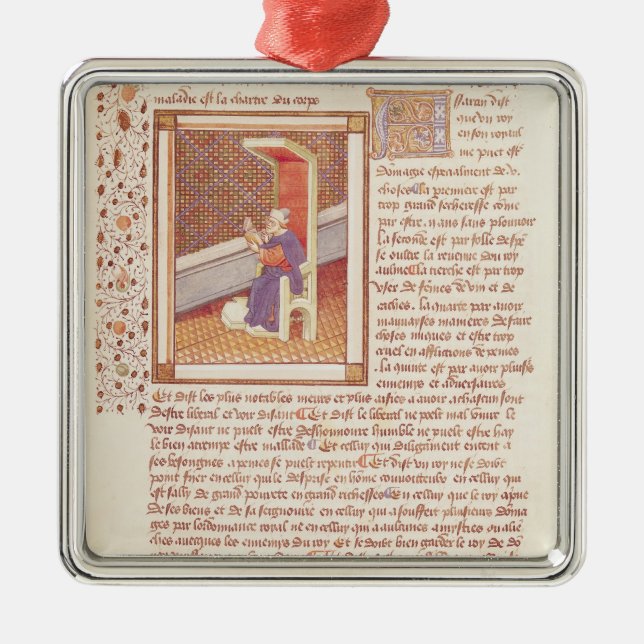 maladie est la chartre du corps
que un roy
en son roial
me puet est
domage especialment de v.
choses La premiere est par
trop grand secheresse come
par estre .ij. ans sans plouvoir
La seconde est par folle despe
se oultre la revenue du roy
La tierche est par trop
user de femes de vin et de
La quarte par avoir
mauvayses manieres de faire
choses iniques et estre trop
cruel en afflictions de peines
La quinte est par avoir plusrs
ennemys et adversaires
Et dist les plus notables meurs et plus aisies a avoir a chascun sont
destre liberal et voir disant Et dist le liberal ne poelt mal
voir disant ne puelt estre deshonnoure humble ne puelt estre hay
le bien atrempe estre mallade Et celluy qui diligament entent a
ses besongnes a peines se puelt repentir Et dist un roy ne se doibt
point fier en celluy qui le desprise en home convoiteulx en celluy qui
est sally de grand povrete en grand richesses En celluy que le roy a prive
de ses biens et de sa seignourie en celluy qui a souffert plusieurs doma
ges par lordonnance roial ne en celluy qui a aulcunes amysties ou alie
ches avecques les ennemys du roy Et se doibt bien garder le roy de do